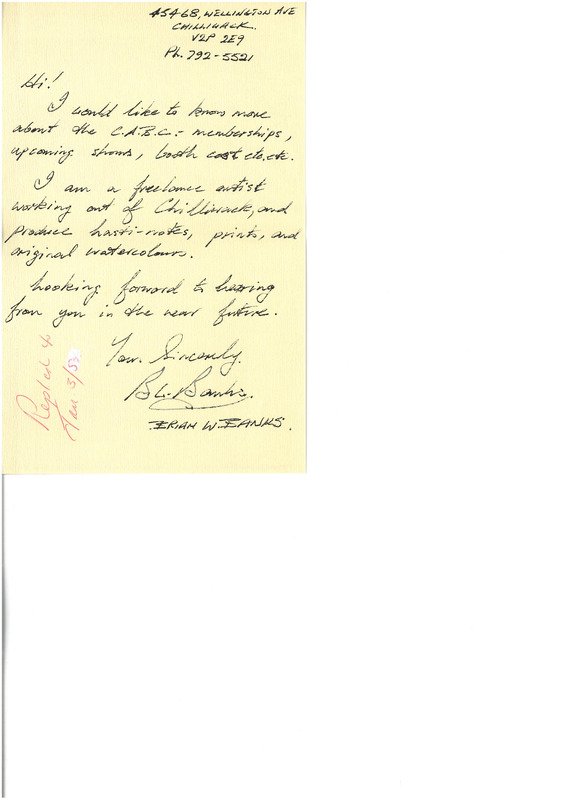 45468, WELLINGTON AVE
CHILLIWACK.
V2P 2E9
Ph. 792-5521
Hi!
I would like to know more
about the C.A.B.C. - memberships,
upcoming shows, booth cost etc. etc.
I am a freelance artist
working out of Chilliwack, and
produce hasti-notes, prints, and
original watercolours.
Looking forward to hearing
from you in the near future.
Your Sincerely.
B.W. Banks.
BRIAN W. BANKS.
Replied
Jan 3/83